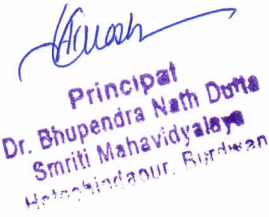 Principal
Dr. Bhupendra Nath Dutta
Smriti Mahavidyalaya
Burdwan